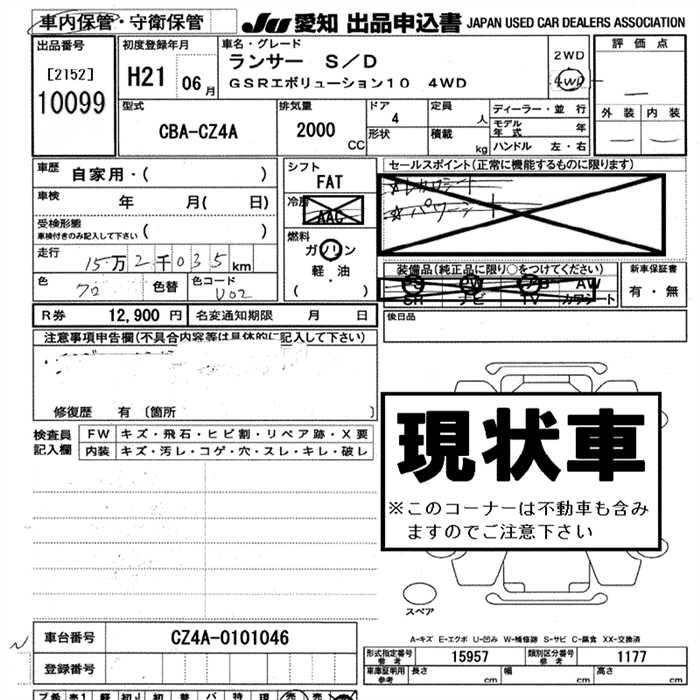 車内保管・守衛保管
JU 愛知 出品申込書 JAPAN USED CAR DEALERS ASSOCIATION
出品番号
[2152]
10099
初度登録年月
H21 06月
車名・グレード
ランサー S/D
GSRエボリューション10 4WD
2WD
4WD
評価点
外装 内装
型式
CBA-CZ4A
排気量
2000
CC
ドア
4
形状
定員
人
積載
kg
ディーラー・並行
モデル年式 年
ハンドル 左・右
車歴
自家用・( )
車検
年 月( 日)
受検形態
車検付きのみ記入して下さい ( )
走行
15万2千035km
色
色替
色コード
U02
シフト
FAT
冷房
AAC
燃料
ガソリン
軽・油
( )
セールスポイント(正常に機能するものに限ります)
☆レカロシート
☆パワーシート
装備品(純正品に限り○をつけてください)
PS PW AB AW
SR ナビ TV カワシート
新車保証書
有・無
R券 12,900円
名変通知期限 月 日
後日品
注意事項申告欄(不具合内容等は具体的に記入して下さい)
修復歴 有〔箇所 〕
検査員記入欄
FW キズ・飛石・ヒビ割・リペア跡・X要
内装 キズ・汚レ・コゲ・穴・スレ・キレ・破レ
現状車
※このコーナーは不動車も含み
ますのでご注意下さい
スペア
A-キズ E-エクボ U-凹み W-補修跡 S-サビ C-腐食 XX-交換済
車台番号
CZ4A-0101046
登録番号
形式指定番号 参考
15957
類別区分番号 参考
1177
車庫証明用 参考
長さ cm 幅 cm 高さ cm